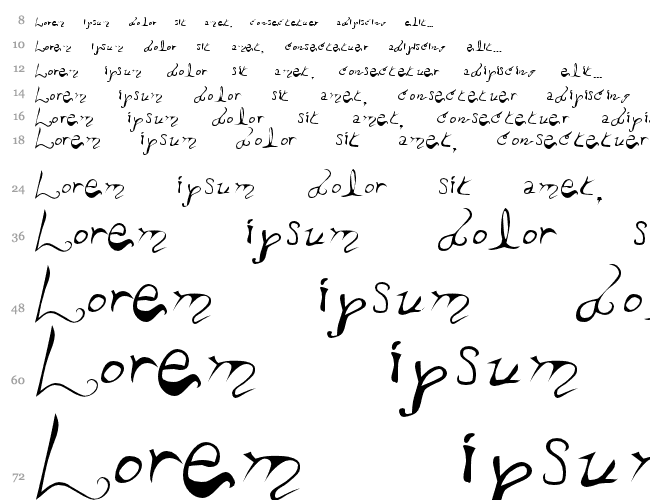 8 Lorem ipsum dolor sit amet, consectetuer adipiscing elit...
10 Lorem ipsum dolor sit amet, consectetuer adipiscing elit...
12 Lorem ipsum dolor sit amet, consectetuer adipiscing elit...
14 Lorem ipsum dolor sit amet, consectetuer adipiscing
16 Lorem ipsum dolor sit amet, consectetuer adipi
18 Lorem ipsum dolor sit amet, consectetuer
24 Lorem ipsum dolor sit amet,
36 Lorem ipsum dolor s
48 Lorem ipsum do
60 Lorem ipsum
72 Lorem ipsu